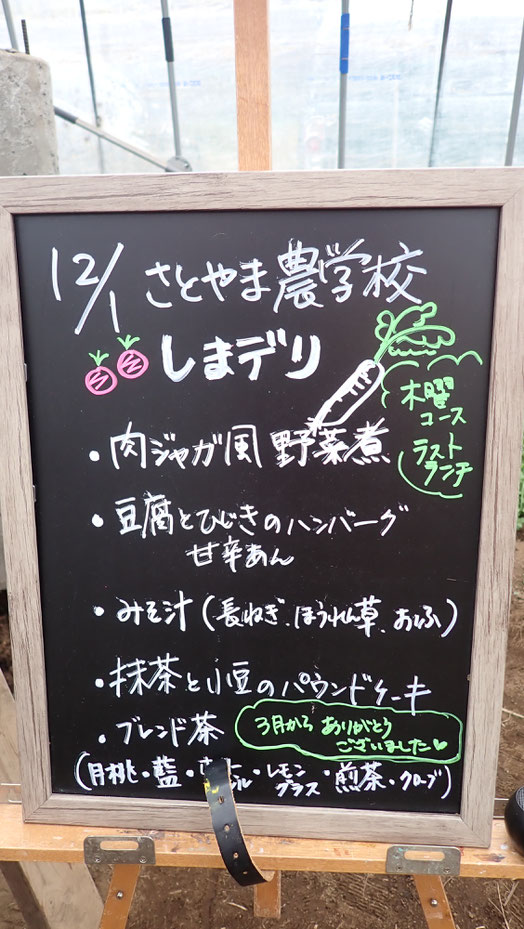 12/1 さとやま農学校
しまデリ
木曜
コース
ラスト
ランチ
・肉ジャガ風 野菜煮
・豆腐とひじきのハンバーグ
甘辛あん
・みそ汁(長ねぎ、ほうれん草、おふ)
・抹茶と小豆のパウンドケーキ
・ブレンド茶
3月から ありがとう
ございました
(月桃・藍・ ・レモン
グラス・煎茶・クローブ)